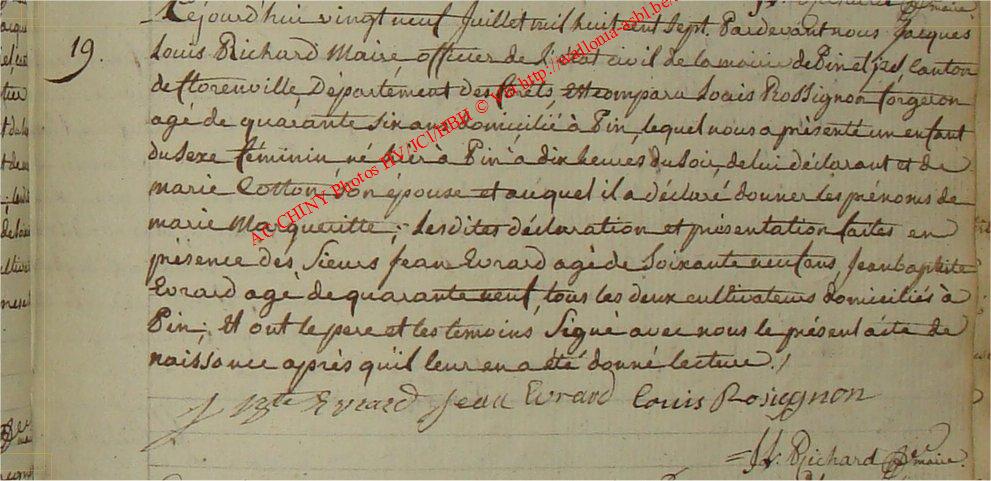 19.
Cejourd'hui vingt neuf Juillet mil huit cent Sept. Pardevant nous Jacques
Louis Richard Maire, officier de l'état civil de la mairie de Pin et Izel, Canton
de florenville, Département des forêts, est comparu Louis Rossignon forgeron
agé de quarante Six ans domicilié à Pin, lequel nous a présenté un enfant
du Sexe féminin né hier à Pin à dix heures du Soir, de lui déclarant et de
marie Cotton Son épouse et auquel il a déclaré donner les prénoms de
marie Margueritte; Lesdites déclaration et présentation faites en
présence des Sieurs Jean Evrard agé de Soixante neuf ans, Jean baptiste
Evrard agé de quarante neuf, tous les deux cultivateurs domiciliés à
Pin; Et ont le pere et les temoins Signé avec nous le présent acte de
naissance après qu'il leur en a été donné lecture./
J Bte Evrard Jean Evrard Louis Rosignon
J.L. Richard maire.
AC CHINY Photos HV/JCl/HBH © Via http://wallonia-asbl.be